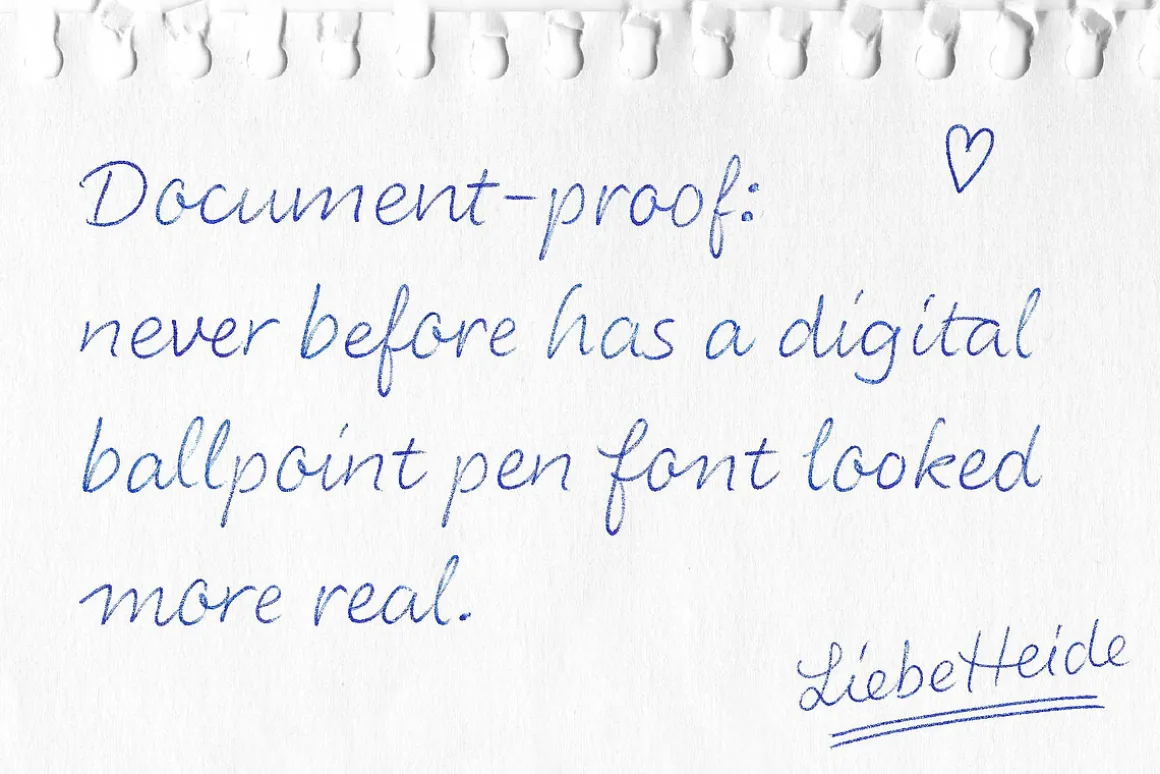 Document-proof:
never before has a digital
ballpoint pen font looked
more real.
LiebeHeide